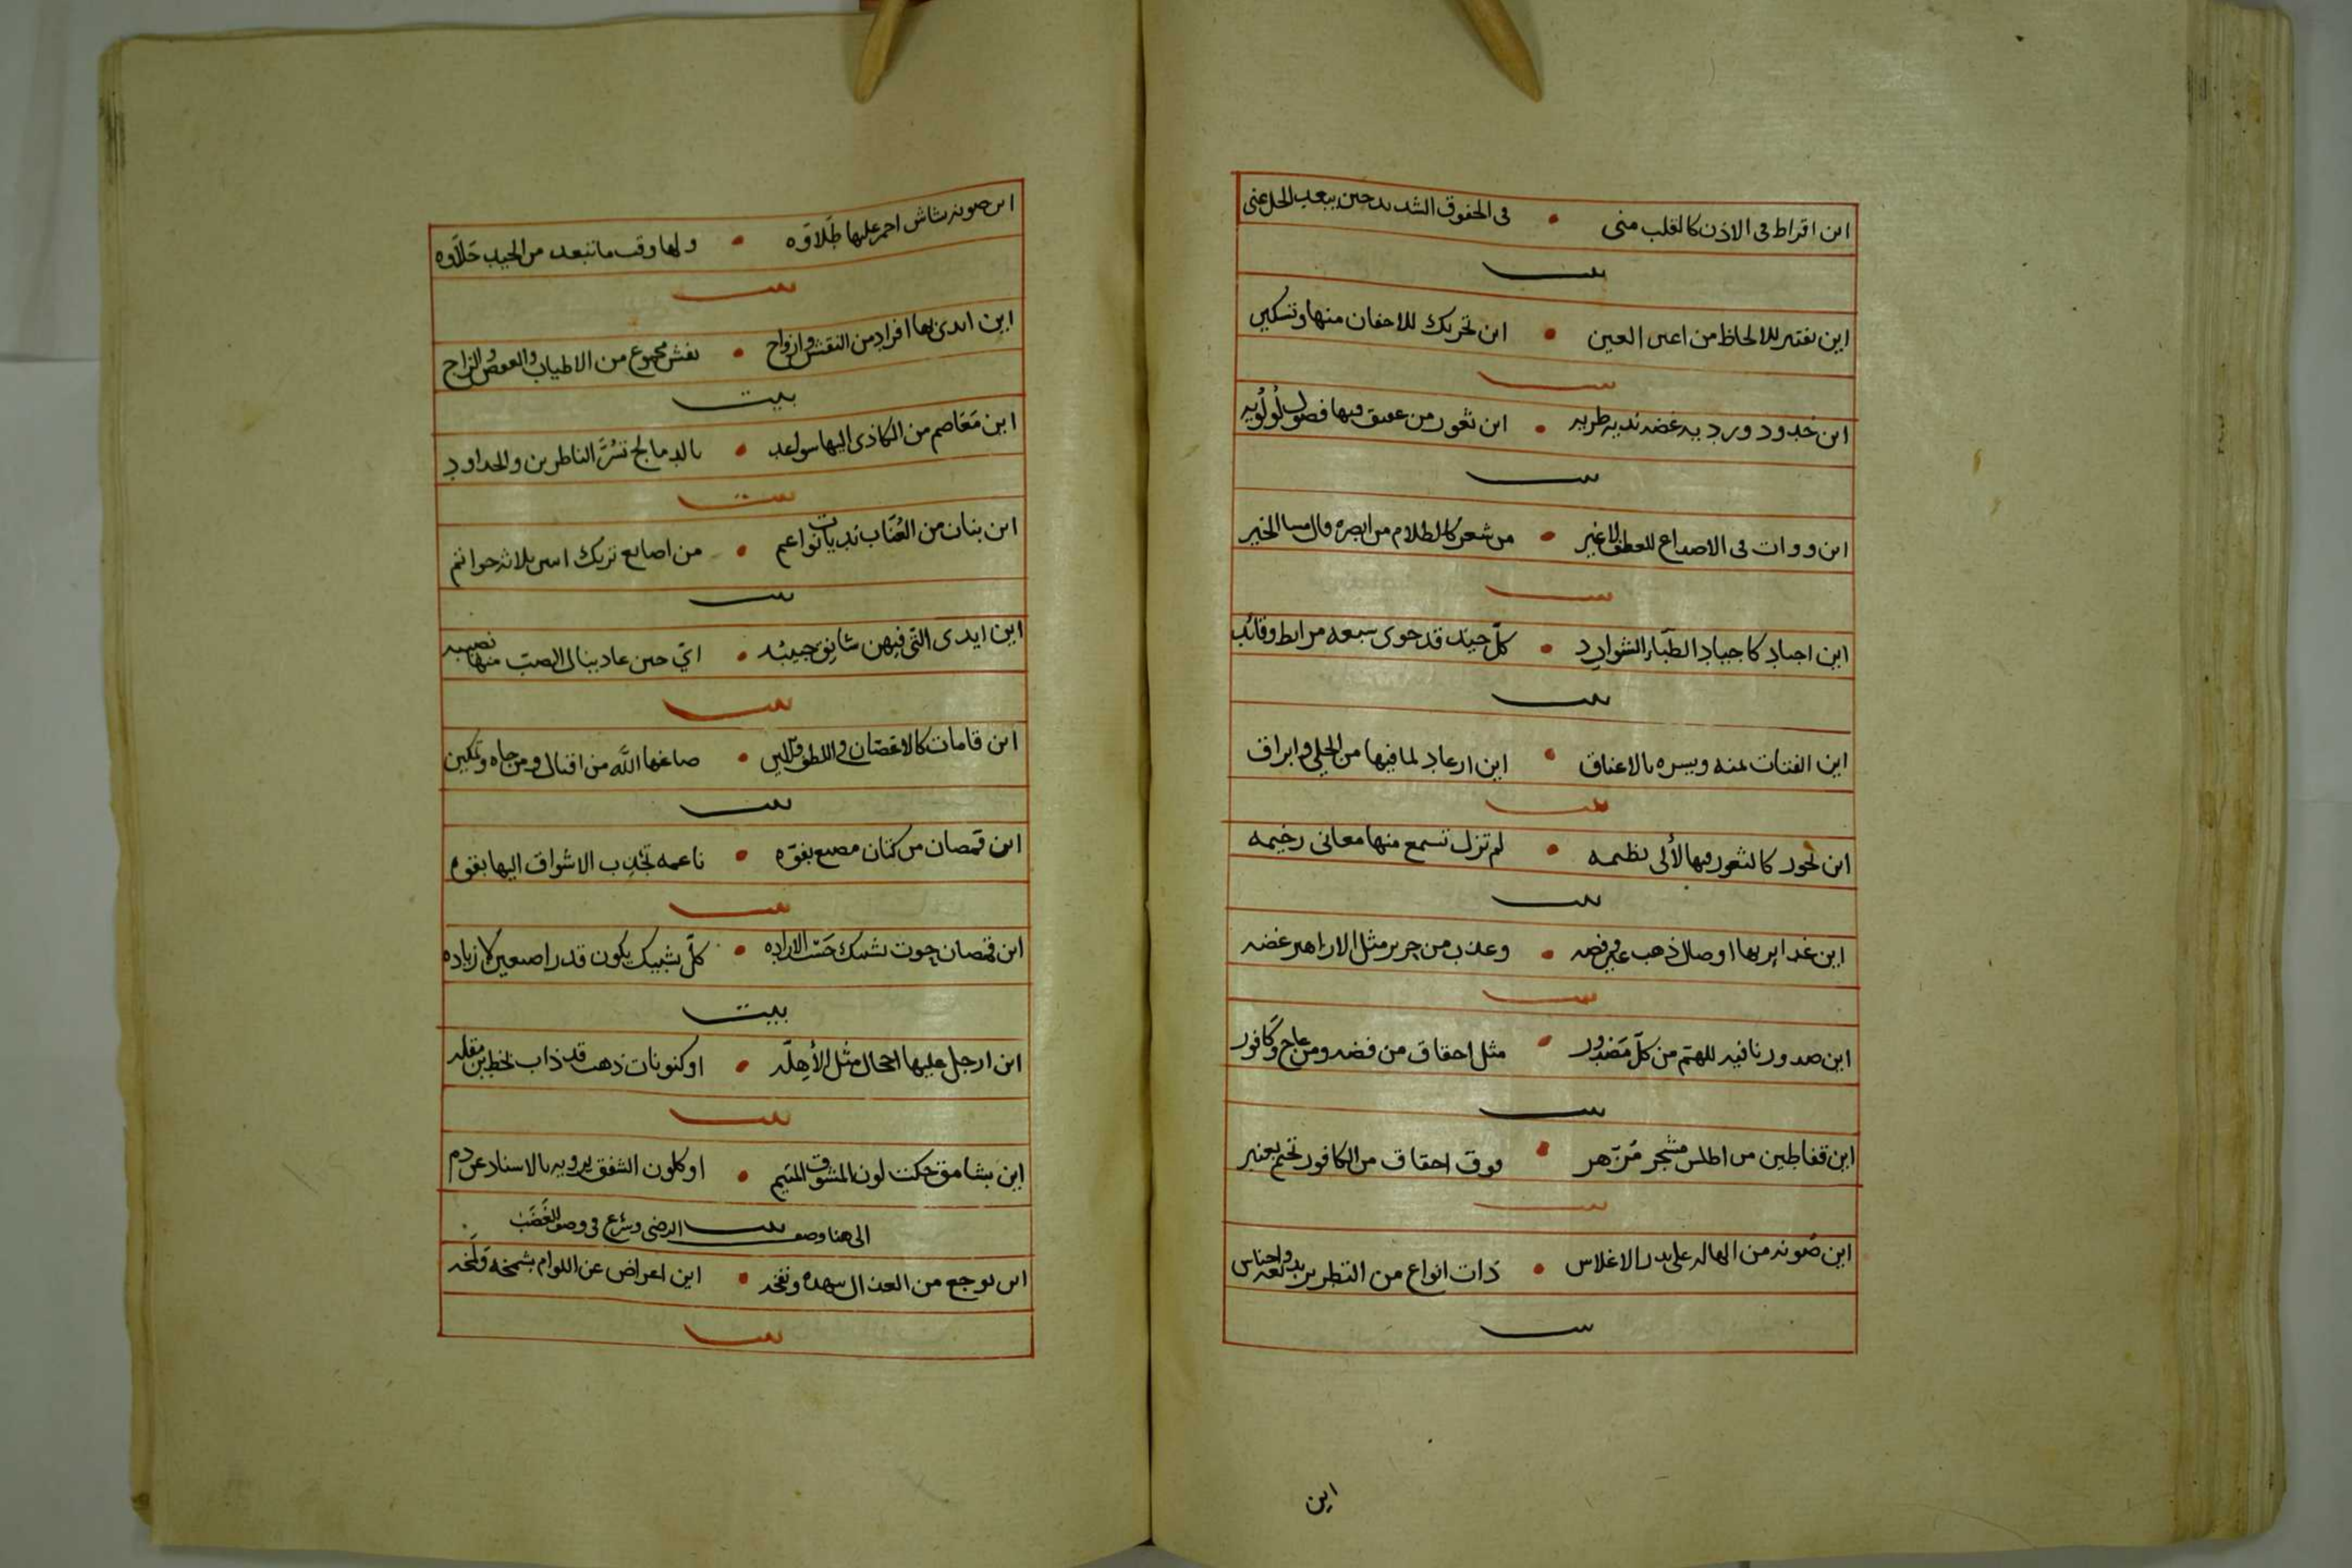 اين اقراط فى الاذن كالقلب منى • فى الخفوق الشديد حين يبعد الخل عنى
بيت
اين تفتير للالحاظ من اعين العين • اين تحريك للاجفان منها وتسكين
بيت
اين خدود ورديه غضه نديه طريه • اين ثغور من عقيق فيها فصوص لولويه
بيت
اين واوات فى الاصداغ للعطف لا غير • من شعر كالظلام من ابصره قال مسا الخير
بيت
اين اجياد كاجياد الظباء الشوارد • كلّ جيّد قد حوى
بيت
اين الفتات يمنه ويسره بالاعناق • اين ارعاد لما فيها من الحلى وابراق
بيت
اين نحور كالثغور فيها لألى نظيمه • لم تزل تسمع منها معانى رخيمه
بيت
اين غداير بها اوصال ذهب غير فضه • وعذب من حرير مثل الازاهير غضه
بيت
اين صدور نافيه للهمّ من كلّ مصدور • مثل احقاق من فضه ومن عاج وكافور
بيت
اين قفاطين من اطلس مشجر مزهر • فوق احقاق من الكافور تختم بعنبر
بيت
اين صونه من الهاله على بدر الاغلاس • ذات انواع من التطريز بديعه واجناس
بيت
اين
اين صونه شاش احمر عليها طلاوه • ولها وقت ما تبعد من الجيب حلاوه
بيت
اين ايدى بها افراد من النقش وازواج • نقش مجموع من الاطياب والعفص والزاج
بيت
اين معاصم من الكاذى اليها سواعد • بالدمالج تسرّ الناظرين والحداود
بيت
اين بنان من العنّاب نديات نواعم • من اصابع تريك اسنى ثلاثه خواتم
بيت
اين ايدى التى فيهن شانق حبيبه • اىّ حين عاد ينال الصب منها نصيبه
بيت
اين قامات كالاغصان فى اللطف واللين • صاغها الله من اقبال ومن جاه وتمكين
بيت
اين قمصان من كتان مصبع بفوّه • ناعمه تجذب الاشواق اليها بقوه
بيت
اين قمصان جوت تشبيك حسب الاراده • كلّ تشبيك يكون قدر اصبعين لا زياده
بيت
اين ارجل عليها احجال مثل الأهلّه • او كنونات ذهب قد ذاب بخط ابن مقله
بيت
اين بشامق حكت لون المشوق المتيم • او كلون الشفق يرويه بالاسناد عن دم
الى هنا وصف بيت الرضى وشرع فى وصف الغضب
اين توجع من العذال ونفخه • اين اعراض عن اللوام بشمخه ولخه
بيت